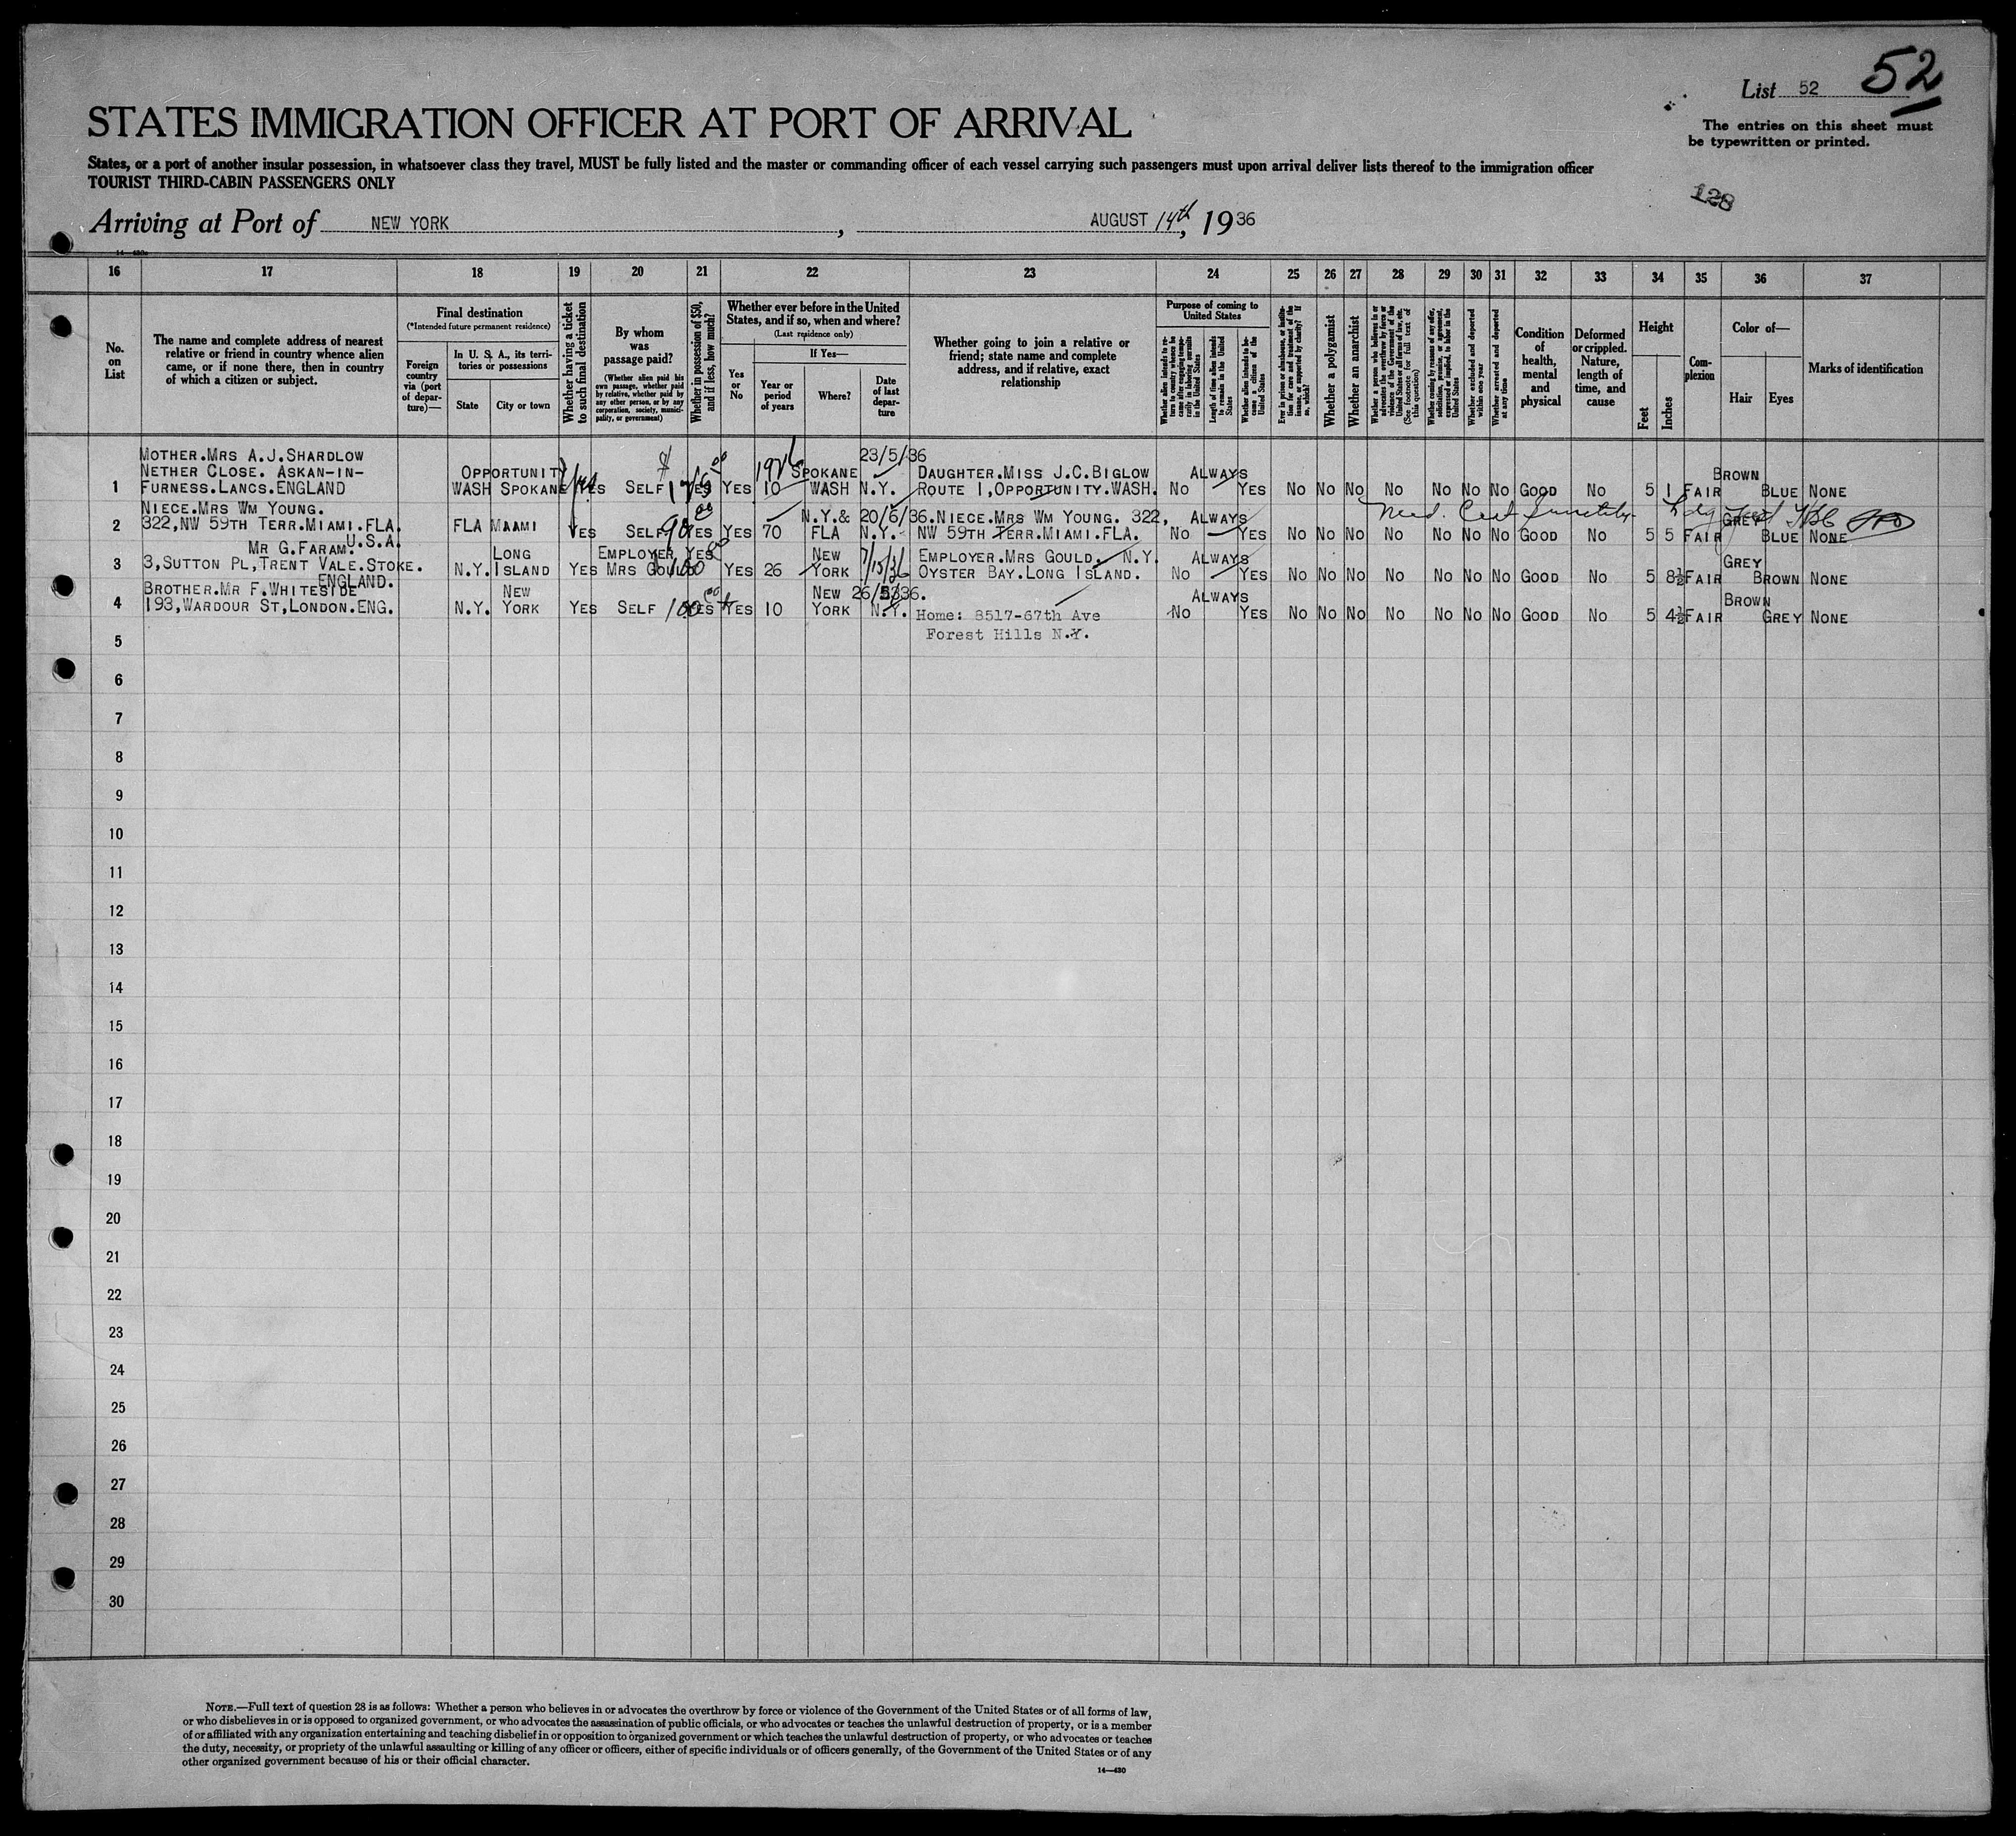 List 52
52
STATES IMMIGRATION OFFICER AT PORT OF ARRIVAL
The entries on this sheet must
be typewritten or printed.
States, or a port of another insular possession, in whatsoever class they travel, MUST be fully listed and the master or commanding officer of each vessel carrying such passengers must upon arrival deliver lists thereof to the immigration officer
TOURIST THIRD-CABIN PASSENGERS ONLY
128
Arriving at Port of NEW YORK, AUGUST 14th, 1936
16 17 18 19 20 21 22 23 24 25 26 27 28 29 30 31 32 33 34 35 36 37
No. on List
The name and complete address of nearest relative or friend in country whence alien came, or if none there, then in country of which a citizen or subject.
Final destination
(*Intended future permanent residence)
Foreign country via (port of departure)—
In U. S. A., its territories or possessions
State
City or town
Whether having a ticket to such final destination
By whom was passage paid?
(Whether alien paid his own passage, whether paid by relative, whether paid by any other person, or by any corporation, society, municipality, or government)
Whether in possession of $50, and if less, how much?
Whether ever before in the United States, and if so, when and where?
(Last residence only)
Yes or No
If Yes—
Year or period of years
Where?
Date of last departure
Whether going to join a relative or friend; state name and complete address, and if relative, exact relationship
Purpose of coming to United States
Whether alien intends to return to country whence he came after engaging temporarily in laboring pursuits in the United States
Length of time alien intends to remain in the United States
Whether alien intends to become a citizen of the United States
Ever in prison or almshouse, or institution for care and treatment of the insane, or supported by charity? If so, which?
Whether a polygamist
Whether an anarchist
Whether a person who believes in or advocates the overthrow by force or violence of the Government of the United States or all forms of law, etc. (See footnote for full text of this question)
Whether coming by reason of any offer, solicitation, promise, or agreement, expressed or implied, to labor in the United States
Whether excluded and deported within one year
Whether arrested and deported at any time
Condition of health, mental and physical
Deformed or crippled. Nature, length of time, and cause
Height
Feet
Inches
Complexion
Color of—
Hair
Eyes
Marks of identification
MOTHER.MRS A.J.SHARDLOW 23/5/36
NETHER CLOSE. ASKAN-IN- OPPORTUNITY 1926 SPOKANE DAUGHTER.MISS J.C.BIGLOW ALWAYS BROWN
1 FURNESS.LANCS.ENGLAND WASH SPOKANE YES SELF YES YES 10 WASH N.Y. ROUTE 1,OPPORTUNITY.WASH. NO YES NO NO NO NO NO NO NO GOOD NO 5 1 FAIR BLUE NONE
NIECE.MRS WM YOUNG. N.Y.& 20/6/36.NIECE.MRS WM YOUNG. 322, ALWAYS Med. Cert GREY
2 322,NW 59TH TERR.MIAMI.FLA. FLA MAAMI YES SELF 90 YES YES 70 FLA N.Y. NW 59TH TERR.MIAMI.FLA. NO YES NO NO NO NO NO NO NO GOOD NO 5 5 FAIR BLUE NONE
U.S.A.
MR G.FARAM. LONG EMPLOYER YES NEW 7/15/36 EMPLOYER.MRS GOULD. N.Y. ALWAYS GREY
3 3,SUTTON PL,TRENT VALE.STOKE. N.Y. ISLAND YES MRS GOULD 100 YES 26 YORK OYSTER BAY.LONG ISLAND. NO YES NO NO NO NO NO NO NO GOOD NO 5 8½ FAIR BROWN NONE
ENGLAND.
BROTHER.MR F.WHITESIDE NEW NEW 26/5/36. ALWAYS BROWN
4 193,WARDOUR ST,LONDON.ENG. N.Y. YORK YES SELF 100 YES YES 10 YORK N.Y. Home: 8517-67th Ave NO YES NO NO NO NO NO NO NO GOOD NO 5 4½ FAIR GREY NONE
Forest Hills N.Y.
5
6
7
8
9
10
11
12
13
14
15
16
17
18
19
20
21
22
23
24
25
26
27
28
29
30
NOTE.—Full text of question 28 is as follows: Whether a person who believes in or advocates the overthrow by force or violence of the Government of the United States or of all forms of law,
or who disbelieves in or is opposed to organized government, or who advocates the assassination of public officials, or who advocates or teaches the unlawful destruction of property, or is a member
of or affiliated with any organization entertaining and teaching disbelief in or opposition to organized government or which teaches the unlawful destruction of property, or who advocates or teaches
the duty, necessity, or propriety of the unlawful assaulting or killing of any officer or officers, either of specific individuals or of officers generally, of the Government of the United States or of any
other organized government because of his or their official character.
14—430